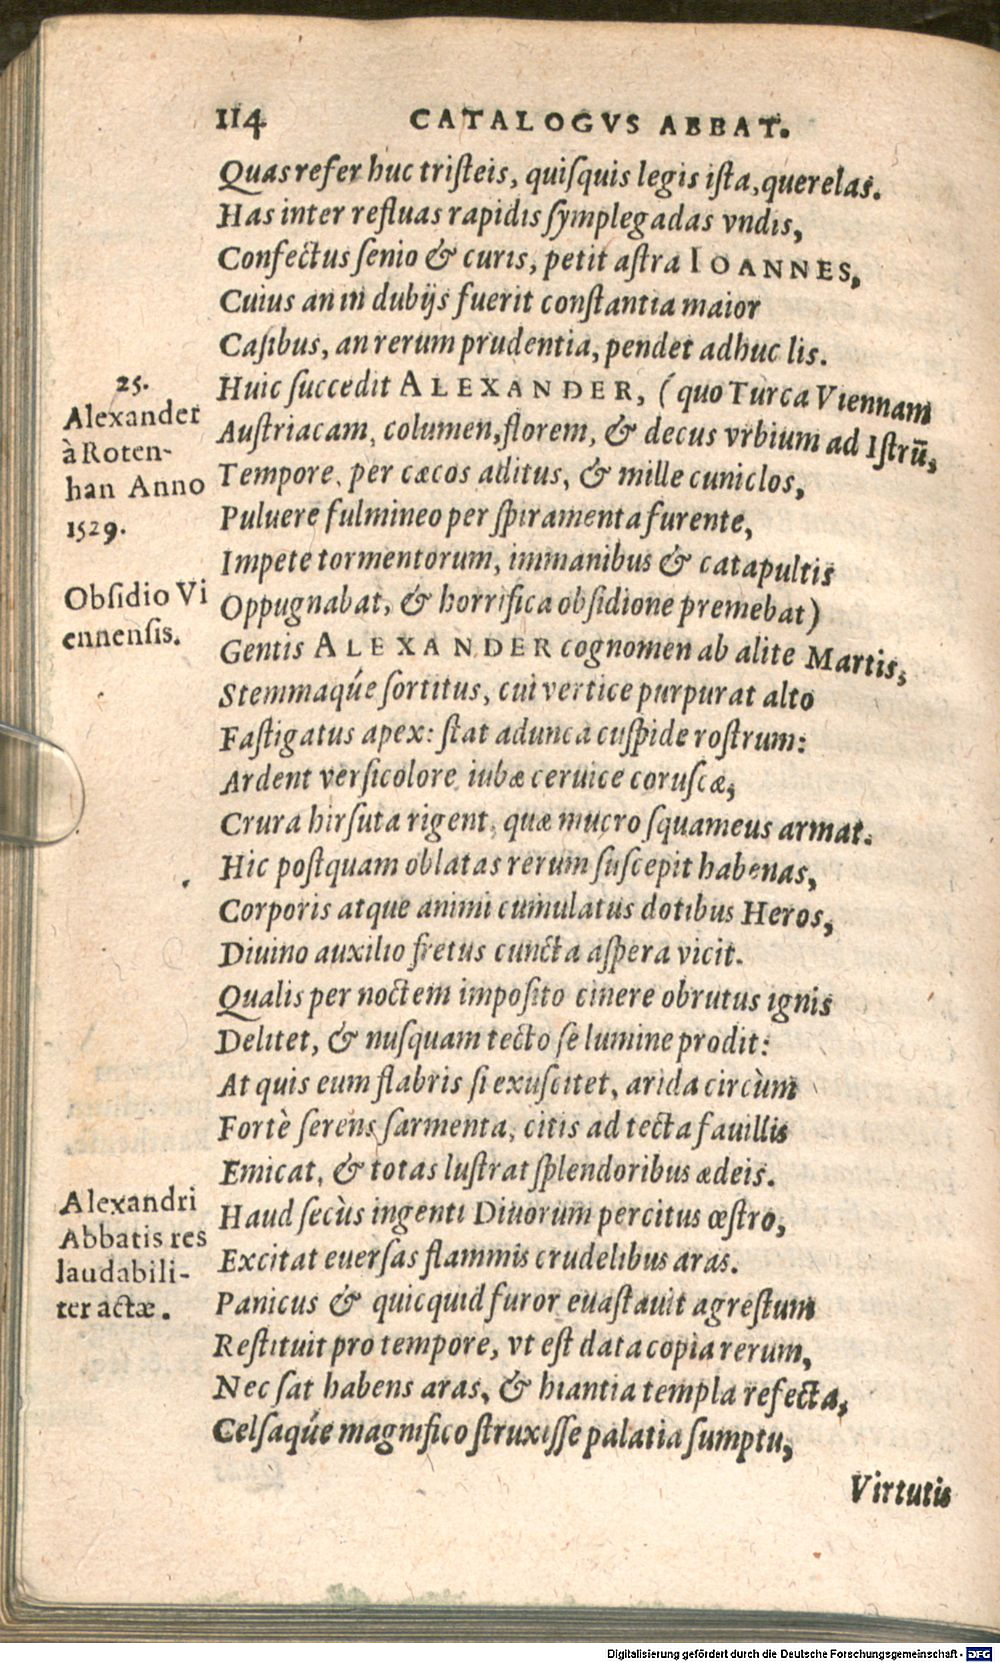 114 CATALOGVS ABBAT.
Quas refer huc tristeis, quisquis legis ista, querelas.
Has inter refluas rapidis symplegadas vndis,
Confectus senio & curis, petit astra IOANNES,
Cuius an in dubijs fuerit constantia maior
Casibus, an rerum prudentia, pendet adhuc lis.
25.
Alexander
à Roten-
han Anno
1529.
Huic succedit ALEXANDER, (quo Turca Viennam
Austriacam, columen, florem, & decus vrbium ad Istrū,
Tempore, per cæcos aditus, & mille cuniclos,
Puluere fulmineo per spiramenta furente,
Obsidio Vi
ennensis.
Impete tormentorum, immanibus & catapultis
Oppugnabat, & horrifica obsidione premebat)
Gentis ALEXANDER cognomen ab alite Martis,
Stemmaq́ue sortitus, cui vertice purpurat alto
Fastigatus apex: stat adunca cuspide rostrum:
Ardent versicolore iubæ ceruice coruscæ,
Crura hirsuta rigent, quæ mucro squameus armat.
Hic postquam oblatas rerum suscepit habenas,
Corporis atque animi cumulatus dotibus Heros,
Diuino auxilio fretus cuncta aspera vicit.
Qualis per noctem imposito cinere obrutus ignis
Delitet, & nusquam tecto se lumine prodit:
At quis eum flabris si exuscitet, arida circùm
Fortè serens sarmenta, citis ad tecta fauillis
Emicat, & totas lustrat splendoribus ædeis.
Alexandri
Abbatis res
laudabili-
ter actæ.
Haud secùs ingenti Diuorum percitus œstro,
Excitat euersas flammis crudelibus aras.
Panicus & quicquid furor euastauit agrestum
Restituit pro tempore, vt est data copia rerum,
Nec sat habens aras, & hiantia templa refecta,
Celsaq́ue magnifico struxisse palatia sumptu,
Virtutis
Digitalisierung gefördert durch die Deutsche Forschungsgemeinschaft - DFG